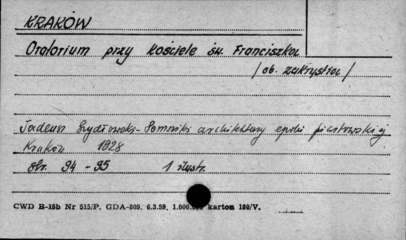 KRAKÓW
Oratorium przy kościele św. Franciszka
/ob. zakrystia/
Tadeusz Szydłowski - Pomniki architektury epoki piastowskiej
Kraków 1928
str. 94 - 95 1 ilustr.
CWD B-15b Nr 515/P. GDA-809. 6.3.59. 1.000. karton 180/V.